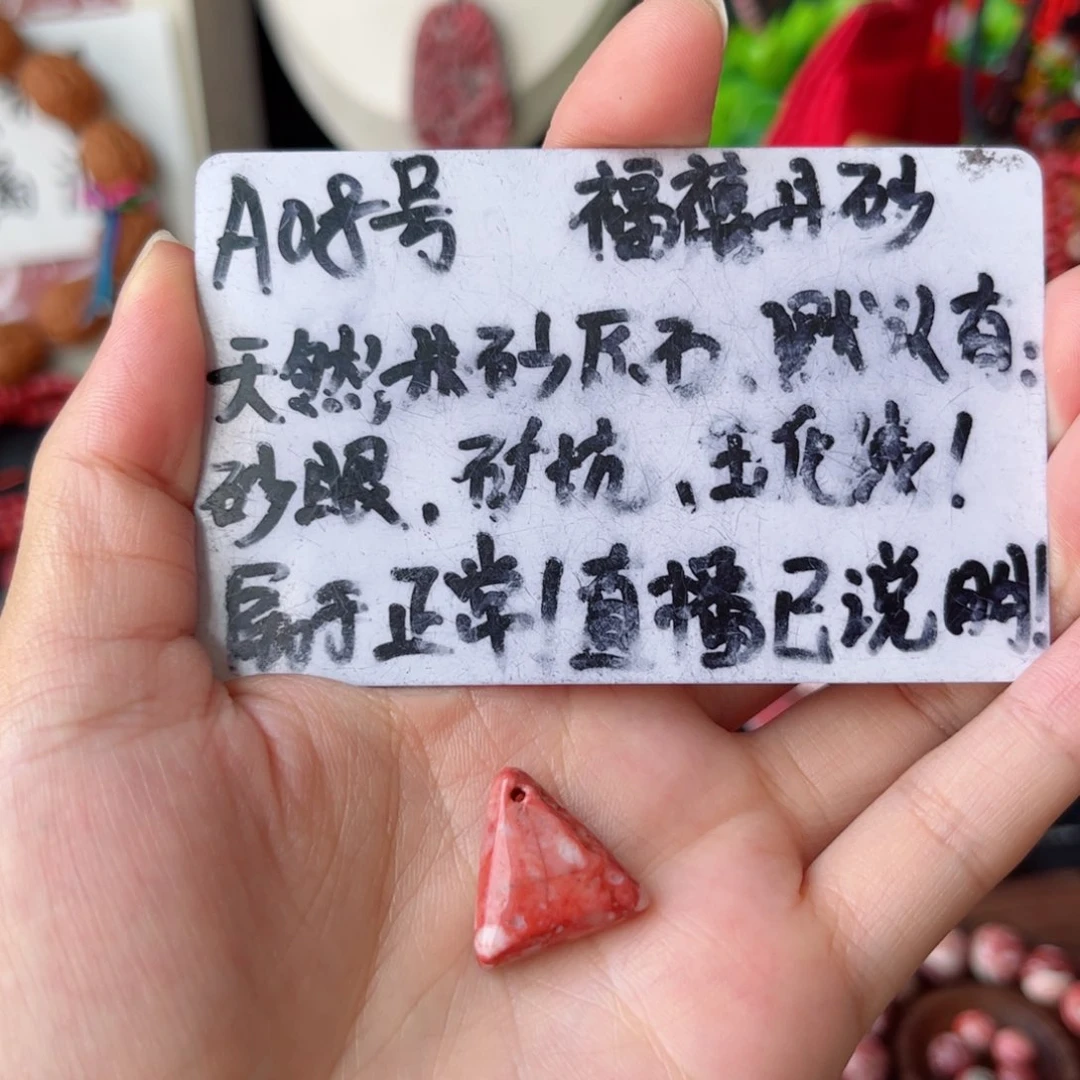 A08号 福禄丹砂
天然朱砂原石、默认有：
砂眼、矿坑、玉化线！
属于正常！直播已说明！